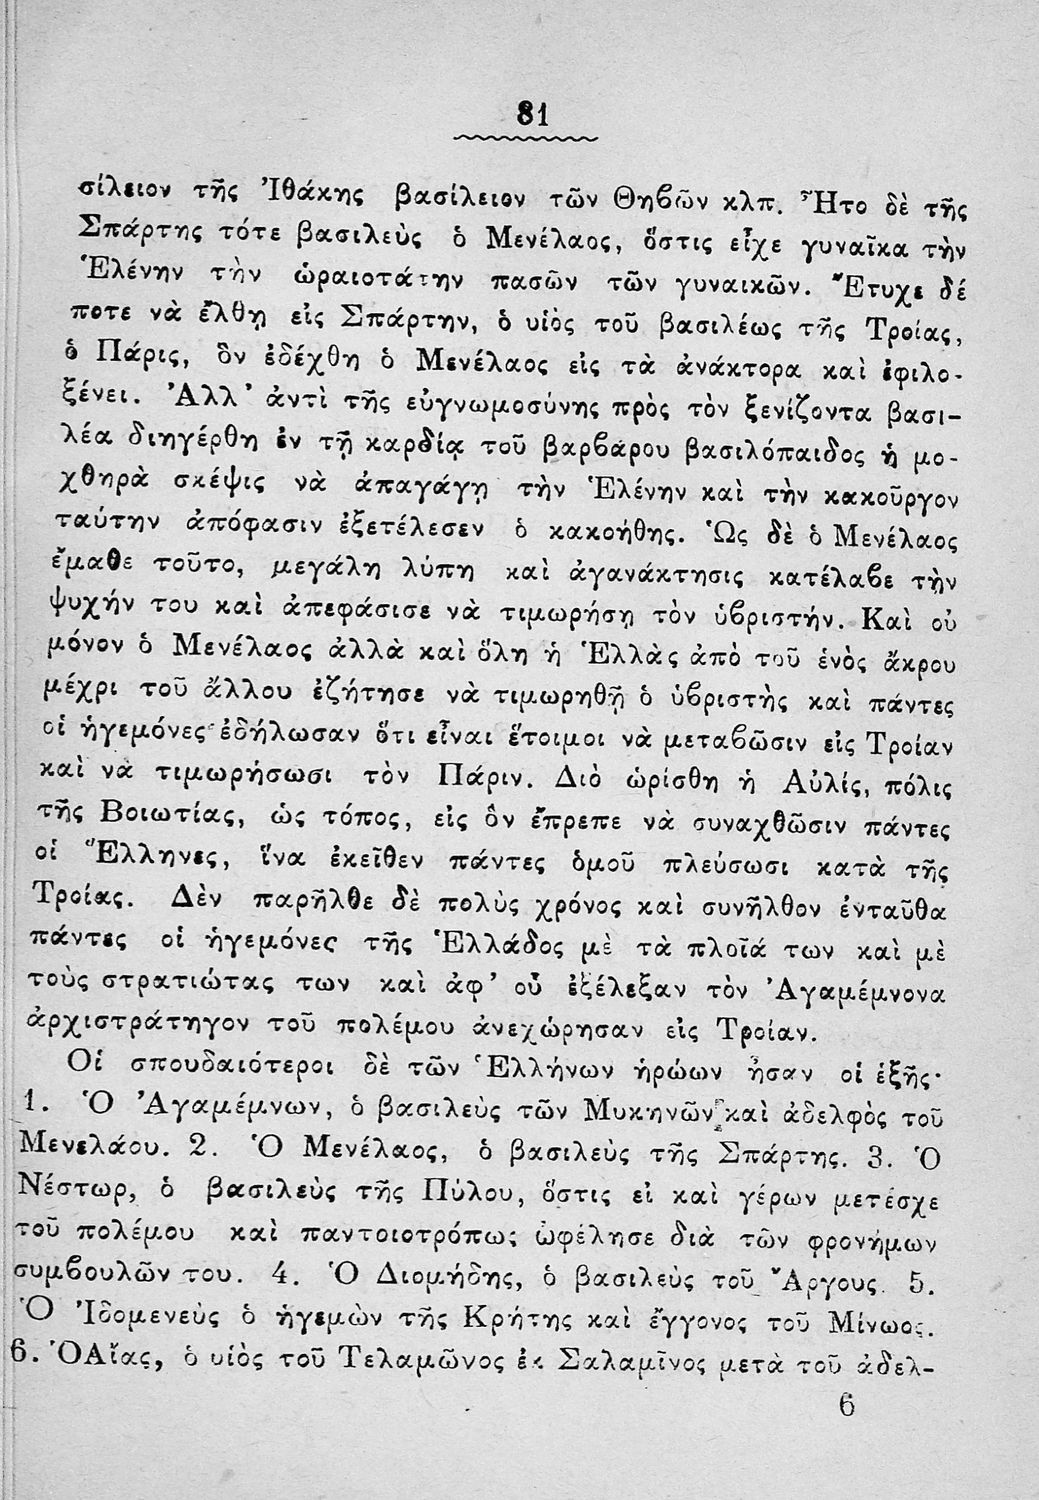 81
σίλειον τῆς Ἰθάκης βασίλειον τῶν Θηβῶν κλπ. Ἦτο δὲ τῆς
Σπάρτης τότε βασιλεὺς ὁ Μενέλαος, ὅστις εἶχε γυναῖκα τὴν
Ἑλένην τὴν ὡραιοτάτην πασῶν τῶν γυναικῶν. Ἔτυχε δέ
ποτε νὰ ἔλθῃ εἰς Σπάρτην, ὁ υἱὸς τοῦ βασιλέως τῆς Τροίας,
ὁ Πάρις, ὃν ἐδέχθη ὁ Μενέλαος εἰς τὰ ἀνάκτορα καὶ ἐφιλο-
ξένει. Ἀλλ᾿ ἀντὶ τῆς εὐγνωμοσύνης πρὸς τὸν ξενίζοντα βασι-
λέα διηγέρθη ἐν τῇ καρδίᾳ τοῦ βαρβάρου βασιλόπαιδος ἡ μο-
χθηρὰ σκέψις νὰ ἀπαγάγῃ τὴν Ἑλένην καὶ τὴν κακοῦργον
ταύτην ἀπόφασιν ἐξετέλεσεν ὁ κακοήθης. Ὡς δὲ ὁ Μενέλαος
ἔμαθε τοῦτο, μεγάλη λύπη καὶ ἀγανάκτησις κατέλαβε τὴν
ψυχήν του καὶ ἀπεφάσισε νὰ τιμωρήσῃ τὸν ὑβριστήν. Καὶ οὐ
μόνον ὁ Μενέλαος ἀλλὰ καὶ ὅλη ἡ Ἑλλὰς ἀπὸ τοῦ ἑνὸς ἄκρου
μέχρι τοῦ ἄλλου ἐζήτησε νὰ τιμωρηθῇ ὁ ὑβριστὴς καὶ πάντες
οἱ ἡγεμόνες ἐδήλωσαν ὅτι εἶναι ἕτοιμοι νὰ μεταβῶσιν εἰς Τροίαν
καὶ νὰ τιμωρήσωσι τὸν Πάριν. Διὸ ὡρίσθη ἡ Αὐλίς, πόλις
τῆς Βοιωτίας, ὡς τόπος, εἰς ὃν ἔπρεπε νὰ συναχθῶσιν πάντες
οἱ Ἕλληνες, ἵνα ἐκεῖθεν πάντες ὁμοῦ πλεύσωσι κατὰ τῆς
Τροίας. Δὲν παρῆλθε δὲ πολὺς χρόνος καὶ συνῆλθον ἐνταῦθα
πάντες οἱ ἡγεμόνες τῆς Ἑλλάδος μὲ τὰ πλοῖά των καὶ μὲ
τοὺς στρατιώτας των καὶ ἀφ᾿ οὗ ἐξέλεξαν τὸν Ἀγαμέμνονα
ἀρχιστράτηγον τοῦ πολέμου ἀνεχώρησαν εἰς Τροίαν.
Οἱ σπουδαιότεροι δὲ τῶν Ἑλλήνων ἡρώων ἦσαν οἱ ἑξῆς·
1. Ὁ Ἀγαμέμνων, ὁ βασιλεὺς τῶν Μυκηνῶν καὶ ἀδελφὸς τοῦ
Μενελάου. 2. Ὁ Μενέλαος, ὁ βασιλεὺς τῆς Σπάρτης. 3. Ὁ
Νέστωρ, ὁ βασιλεὺς τῆς Πύλου, ὅστις εἰ καὶ γέρων μετέσχε
τοῦ πολέμου καὶ παντοιοτρόπως ὠφέλησε διὰ τῶν φρονήμων
συμβουλῶν του. 4. Ὁ Διομήδης, ὁ βασιλεὺς τοῦ Ἄργους. 5.
Ὁ Ἰδομενεὺς ὁ ἡγεμὼν τῆς Κρήτης καὶ ἔγγονος τοῦ Μίνωος.
6. Ὁ Αἴας, ὁ υἱὸς τοῦ Τελαμῶνος ἐκ Σαλαμῖνος μετὰ τοῦ ἀδελ-
6